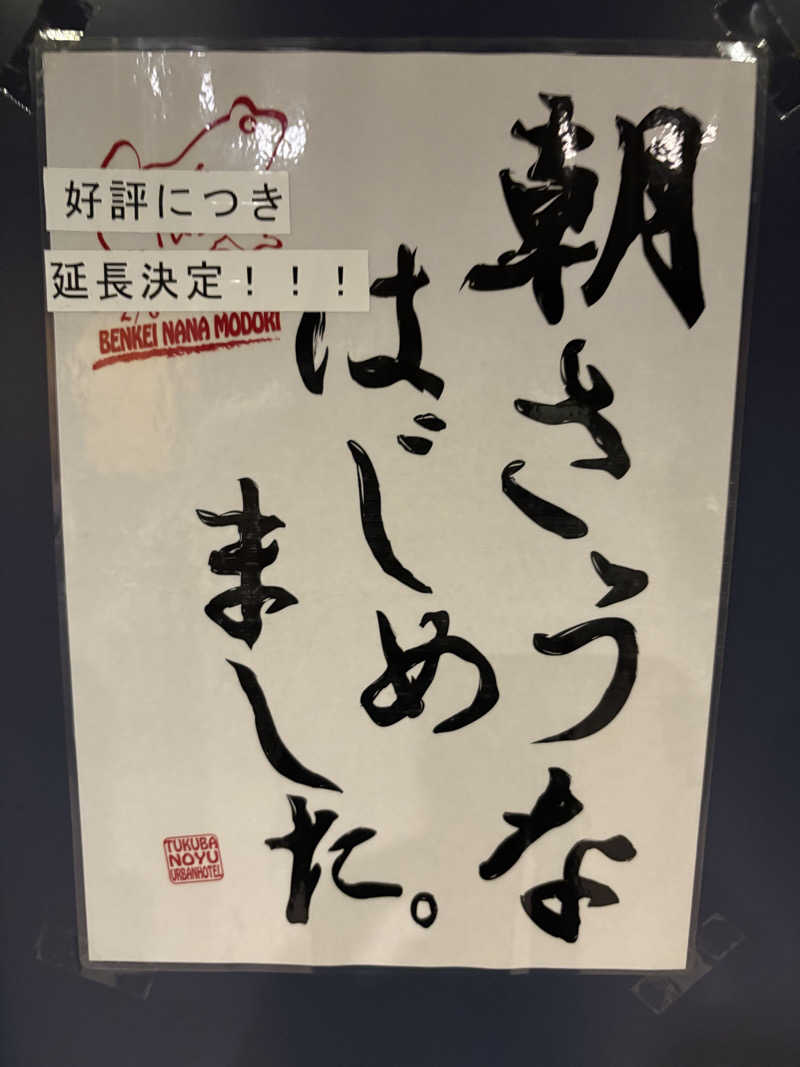 朝さうな
はじめ
ました。
好評につき
延長決定！！！
BENKEI NANA MODORI
TUKUBA
NOYU
URBANHOTEL